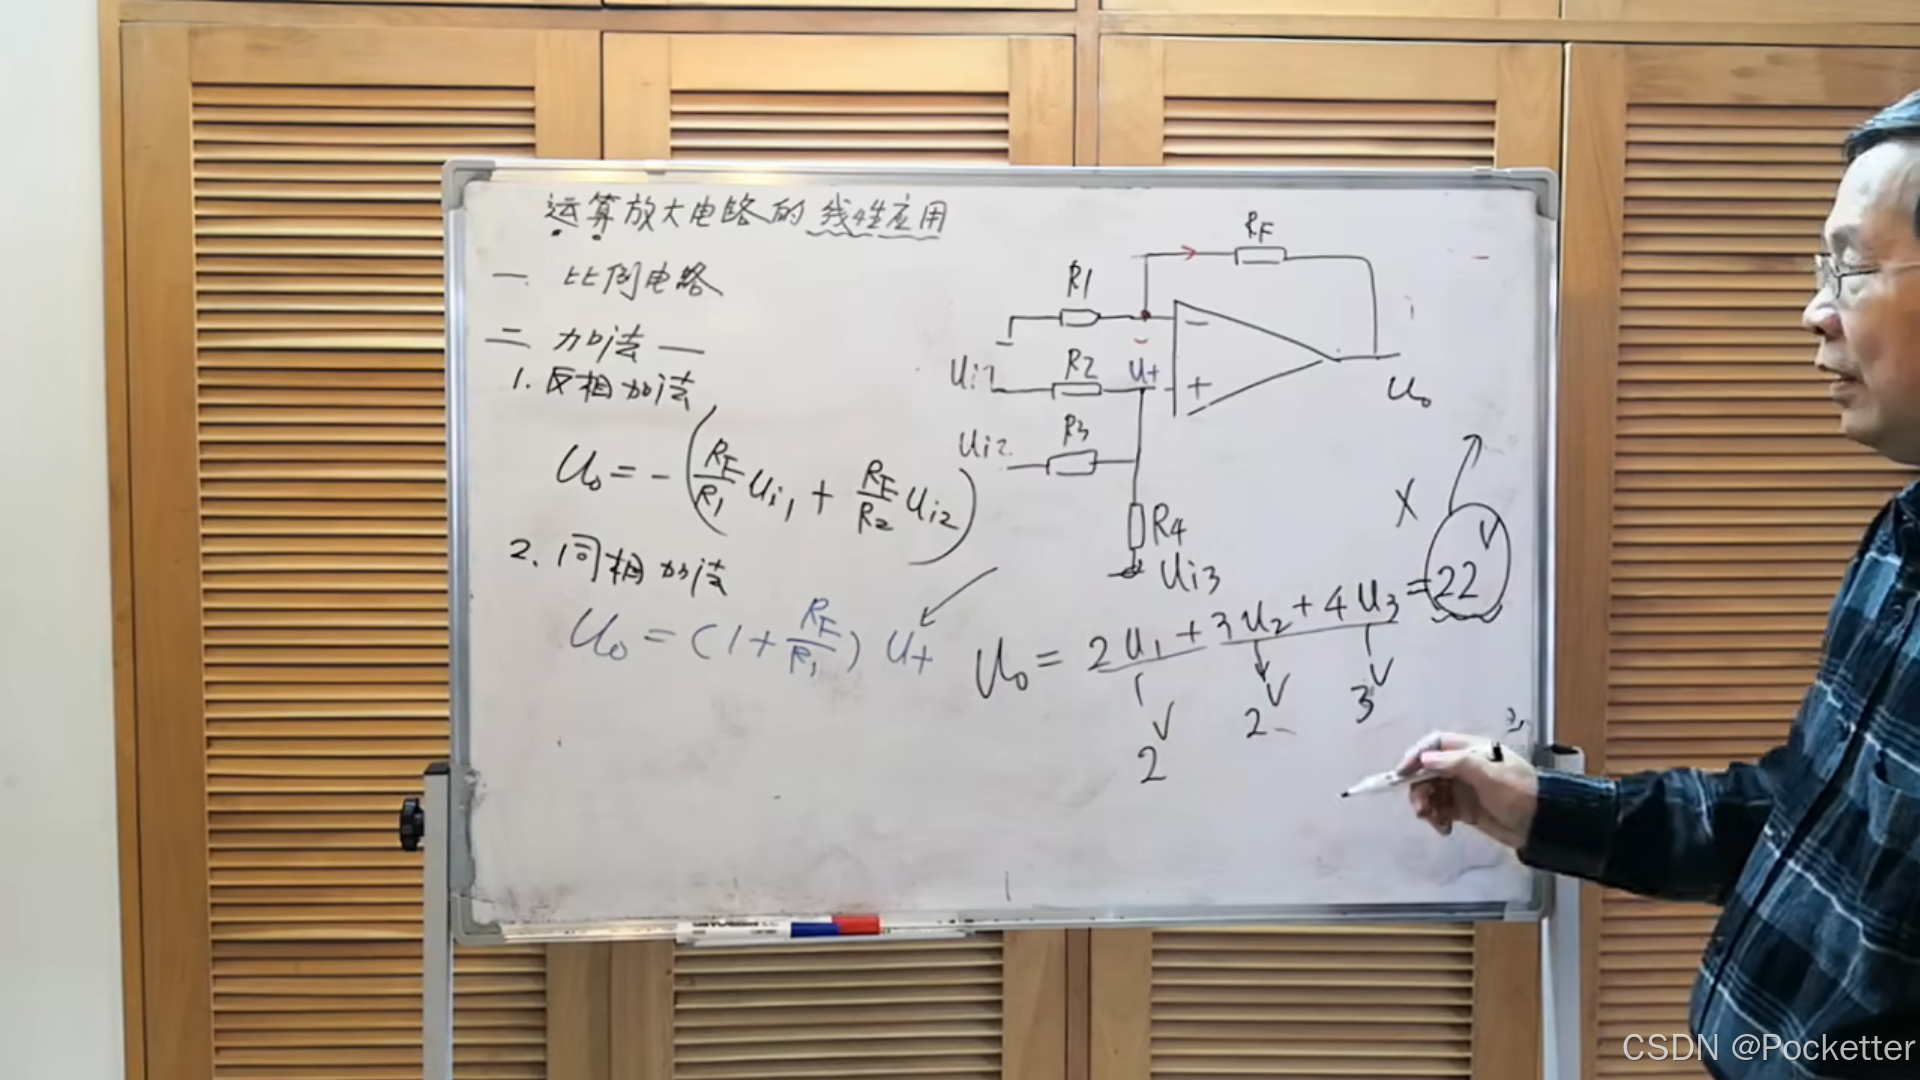 运算放大电路的线性应用
一 比例电路
二 加法—
1. 反相加法
Uo = - (RF/R1 Ui1 + RF/R2 Ui2)
2. 同相加法
Uo = (1 + RF/R1) U+
RF
R1
Ui1
R2
U+
−
+
Uo
Ui2
R3
R4
Ui3
X
Uo = 2U1 + 3U2 + 4U3 = 22V
2V
2V
3V
CSDN @Pocketter